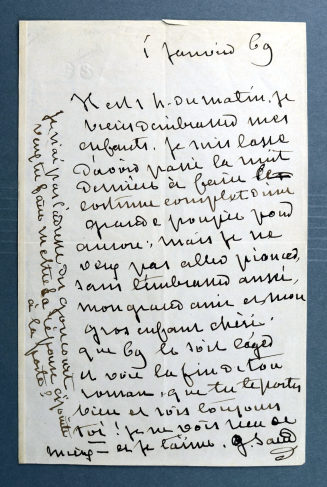 1 janvier 69
h. du matin. je
viens d'embrasser mes
enfants. je suis lasse
d'avoir passé la nuit
dernière à faire le
costume complet d'une
grande poupée pour
aurore, mais je ne
veux pas aller pioncer,
sans t'embrasser aussi,
mon grand ami et mon
gros enfant chéri.
que 69 te soit léger
et voie la fin de ton
roman, que tu te portes
bien et sois toujours
toi ! je ne vois rien de
mieux – et je t'aime. G. Sand
je n'ai pas l'adresse des goncourt,
veux tu faire mettre la réponse ci jointe
à la poste ?